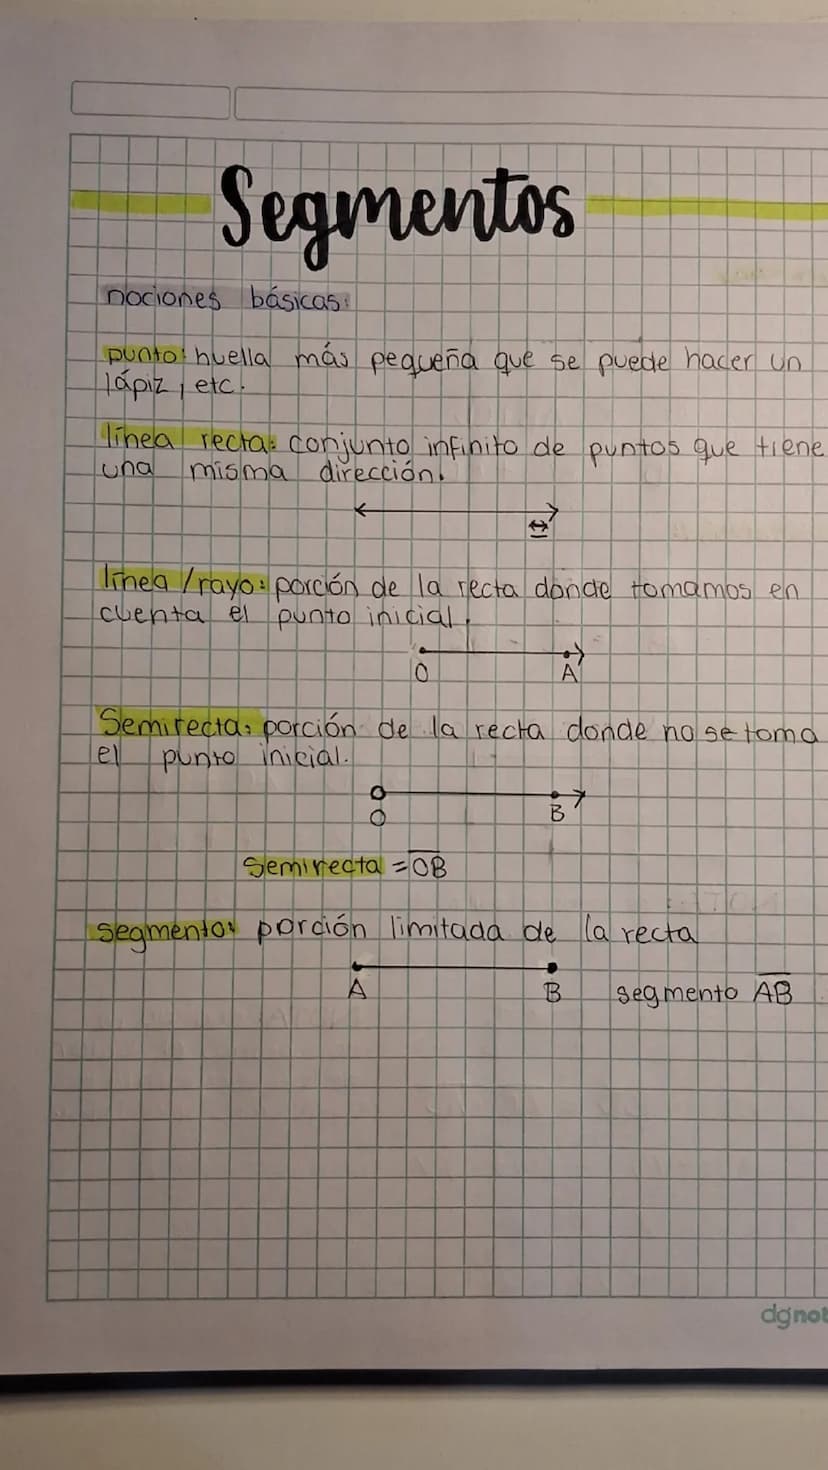 Segmentos
nociones básicas:
punto: huella más pequeña que se puede hacer un
lápiz, etc.
línea recta: conjunto infinito de puntos que tiene
una misma dirección.
↔
línea /rayo: porción de la recta donde tomamos en
cuenta el punto inicial.
O A
Semirecta: porción de la recta donde no se toma
el punto inicial.
B
O
Semirecta = O̅B̅
segmento: porción limitada de la recta
A B segmento A̅B̅
dgnot